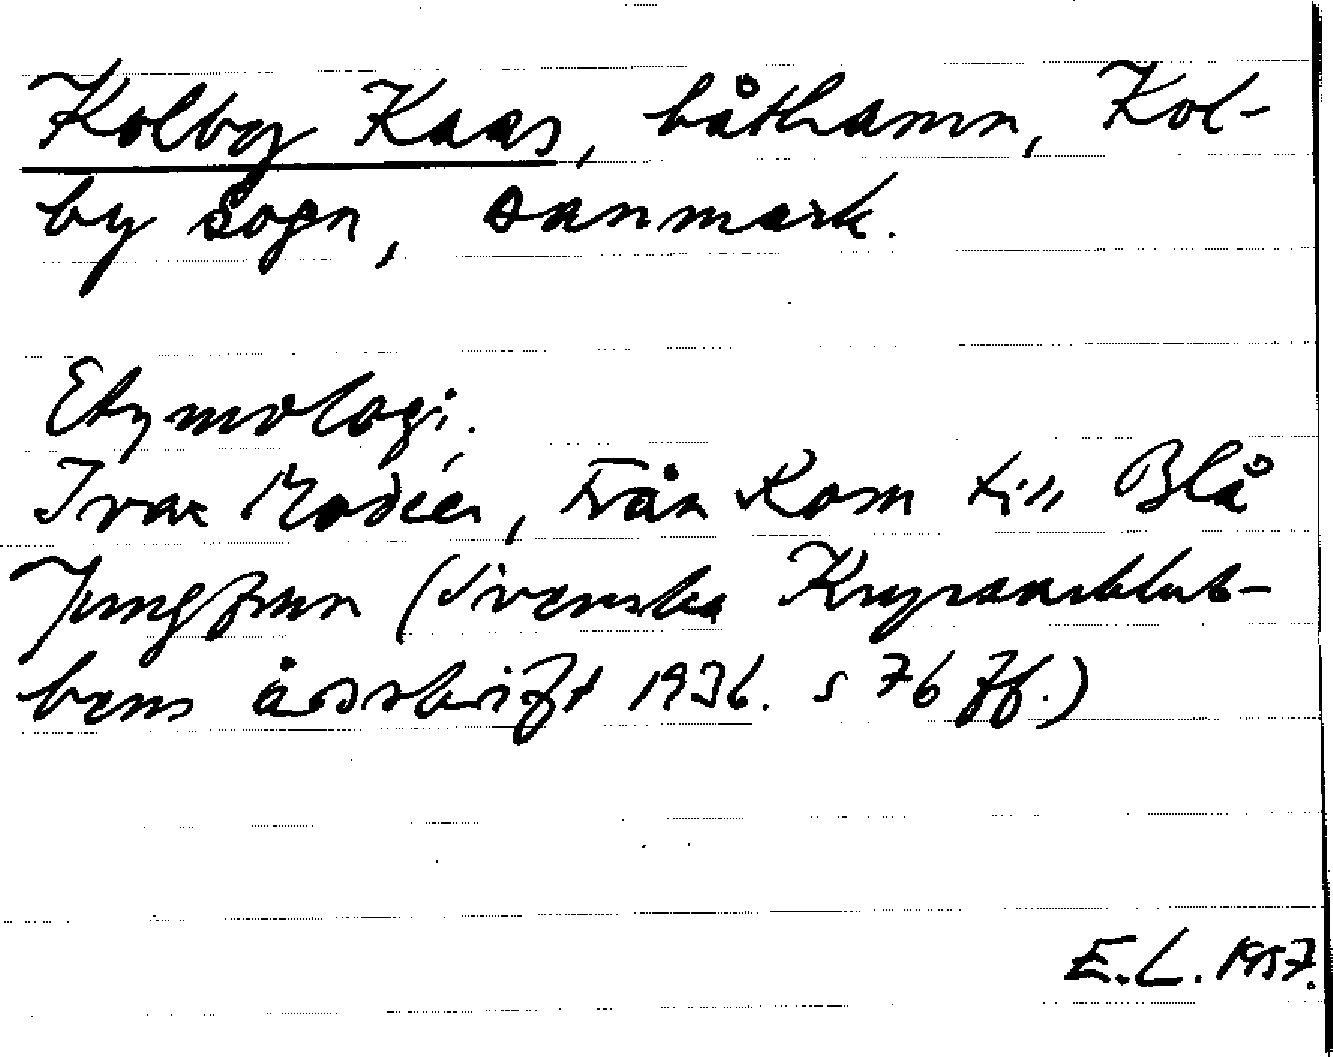 Kolby Kaas, båthamn, Kol-
by sogn, Danmark.
Etymologi.
Ivar Modéer, Från Kom till Blå
Jungfrun (Svenska Kryssarklub-
bens årsskrift 1936. s 76 ff.)
E.L. 1957.